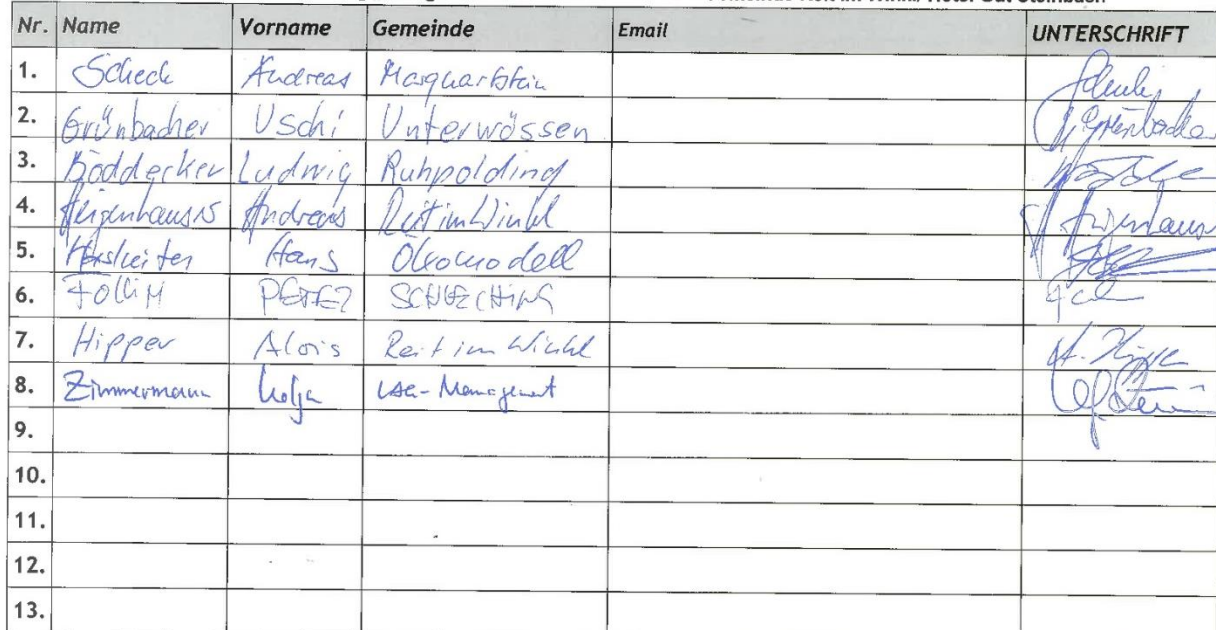 Nr. Name Vorname Gemeinde Email UNTERSCHRIFT
1. Scheck Andreas Marquartstein
2. Grünbacher Uschi Unterwössen Grünbacher
3. Böddecker Ludwig Ruhpolding
4. Andreas Reit im Winkl
5. Hans Ökomodell
6. PETER SCHLECHING
7. Hipper Alois Reit im Winkl A. Hipper
8. Zimmermann Kolja LAG-Management
9.
10.
11.
12.
13.